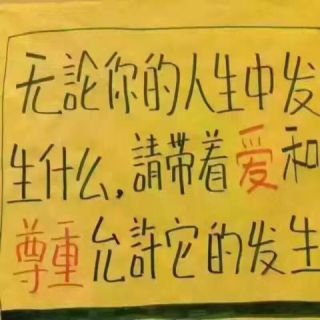 无論你的人生中发
生什么,請带着爱和
尊重允許它的发生